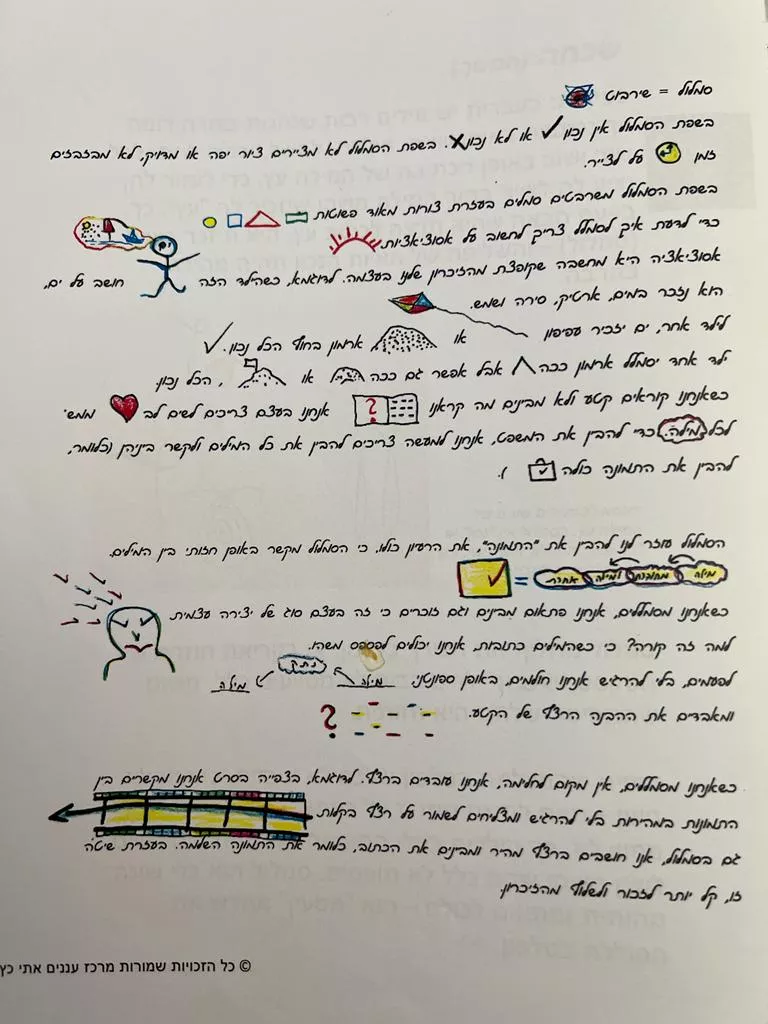 סמלול = שירבוט
בשפת הסמלול אין נכון או לא נכון. בשפת הסמלול לא מציירים ציור יפה או מדויק, לא מבזבזים
זמן על לצייר.
בשפת הסמלול משרבטים סמלים בעזרת צורות מאוד פשוטות
כדי לדעת איך לסמלל צריך לחשוב על אסוציאציות
אסוציאציה היא מחשבה שקופצת מהזיכרון שלנו בעצמה. לדוגמא, כשהילד הזה חושב על ים,
הוא נזכר במים, ארטיק, סירה ושמש.
לילד אחר, ים יזכיר עפיפון או ארמון בחוף הכל נכון.
ילד אחד יסמלל ארמון ככה אבל אפשר גם ככה או , הכל נכון
כשאנחנו קוראים קטע ולא מבינים מה קראנו ? אנחנו בעצם צריכים לשים לב ממש
לכל מילה. כדי להבין את המשפט, אנחנו למעשה צריכים להבין את כל המילים ולקשר ביניהן (כלומר,
להבין את התמונה כולה ).
הסמלול עוזר לנו להבין את "התמונה", את הרעיון כולו, כי הסמלול מקשר באופן חזותי בין המילים.
מילה מחוברת ומילה אחרת =
כשאנחנו מסמללים, אנחנו פתאום מבינים וגם זוכרים כי זה בעצם סוג של יצירה עצמית
למה זה קורה? כי כשהמילים כתובות, אנחנו יכולים לפספס משהו.
לפעמים, בלי להרגיש אנחנו חולמים, באופן ספונטני. מילה נתק מילה
ומאבדים את ההבנה הרצף של הקטע. ?
כשאנחנו מסמללים, אין מקום לחלימה, אנחנו עובדים ברצף. לדוגמא, בצפייה בסרט אנחנו מקשרים בין
התמונות במהירות בלי להרגיש ומצליחים לשמור על רצף בקלות
גם בסמלול, אנו חושבים ברצף מהיר ומבינים את הכתוב, כלומר את התמונה השלמה. בעזרת שיטה
זו, קל יותר לזכור ולשלוף מהזיכרון
© כל הזכויות שמורות מרכז עננים אתי כץ